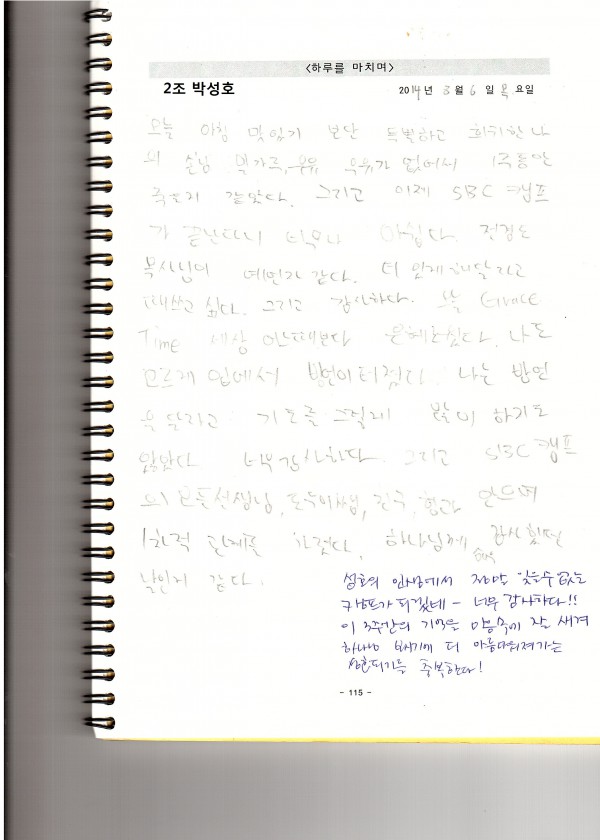 <하루를 마치며>
2조 박성호 2014년 3월 6일 목요일
오늘 아침 보단 특별하고 희귀한 나
의 우유가 없어서
같았다. 그리고 이제 SBC 캠프
가 끝난다니 너무나 아쉽다. 전경도
목사님이 같다. 더 있게 해달라고
떼쓰고 싶다. 그리고 감사하다. 오늘 Grace
Time 세상 어느때보다 나도
모르게 입에서 방언이 터졌다. 나는 방언
을 달라고 기도를 그렇게 많이 하기도
않았다 너무 감사하다. 그리고 SBC 캠프
의 모든 선생님, 친구, 형과 만으며
1차적 관계를 가졌다. 하나님께 감사했던
날인거 같다.
성호의 인생에서 정말 잊을수 없는
캠프가 되겠네 - 너무 감사하다!!
이 3주간의 기억을 마음속에 잘 새겨
하나님 보시기에 더 아름다워져가는
성호되기를 축복한다!
- 115 -